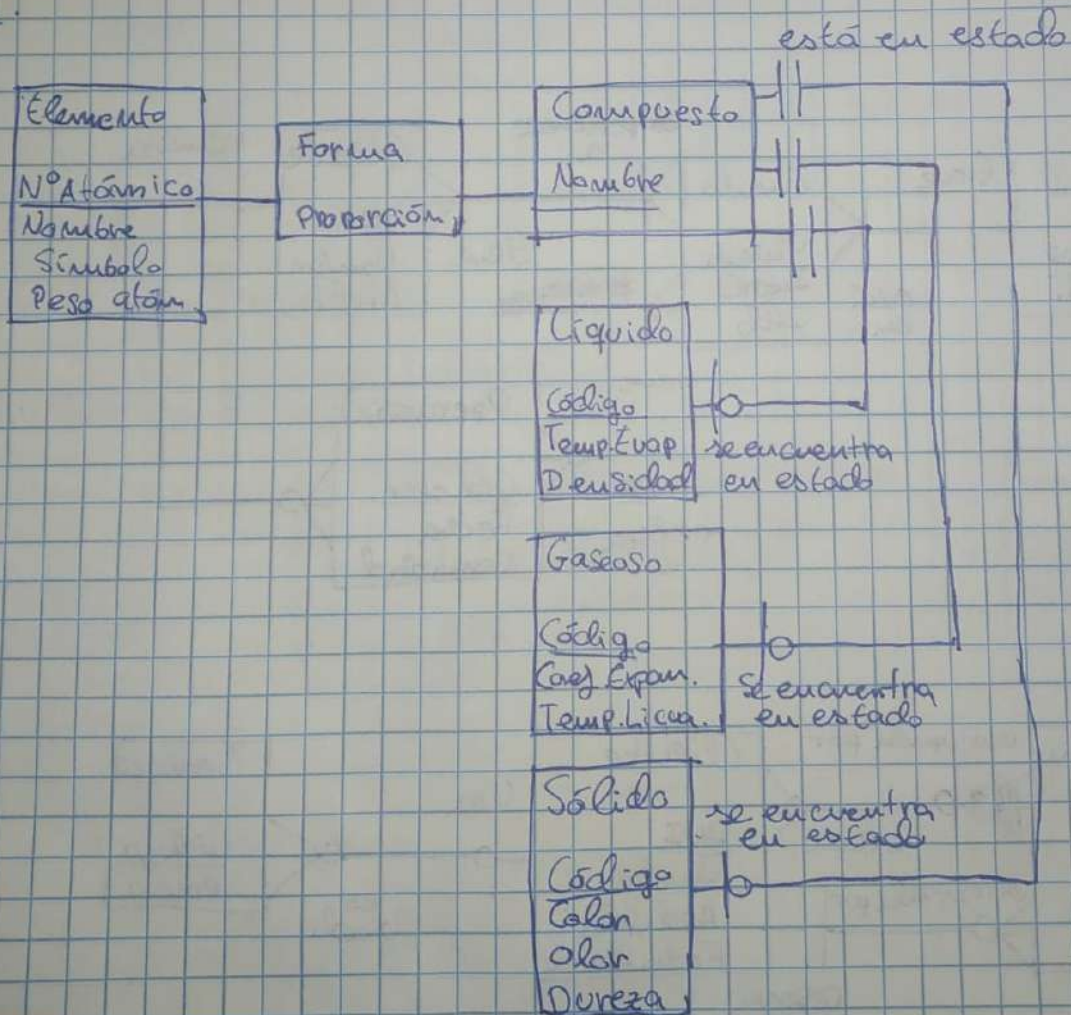 está en estado
Elemento
Nº Atómico
Nombre
Símbolo
Peso atóm.
Forma
Proporción
Compuesto
Nombre
Líquido
Código
Temp.Evap
Densidad
se encuentra
en estado
Gaseoso
Código
Coef Expan.
Temp.Licua.
se encuentra
en estado
Sólido
Código
Color
Olor
Dureza
se encuentra
en estado